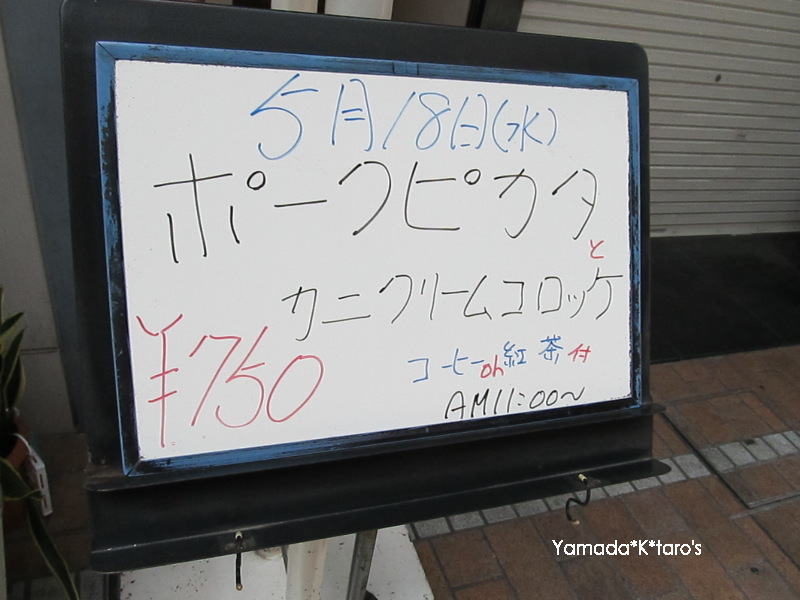 5月18日(水)
ポークピカタ
と
カニクリームコロッケ
¥750
コーヒーor紅茶付
AM11:00~
Yamada*K*taro's